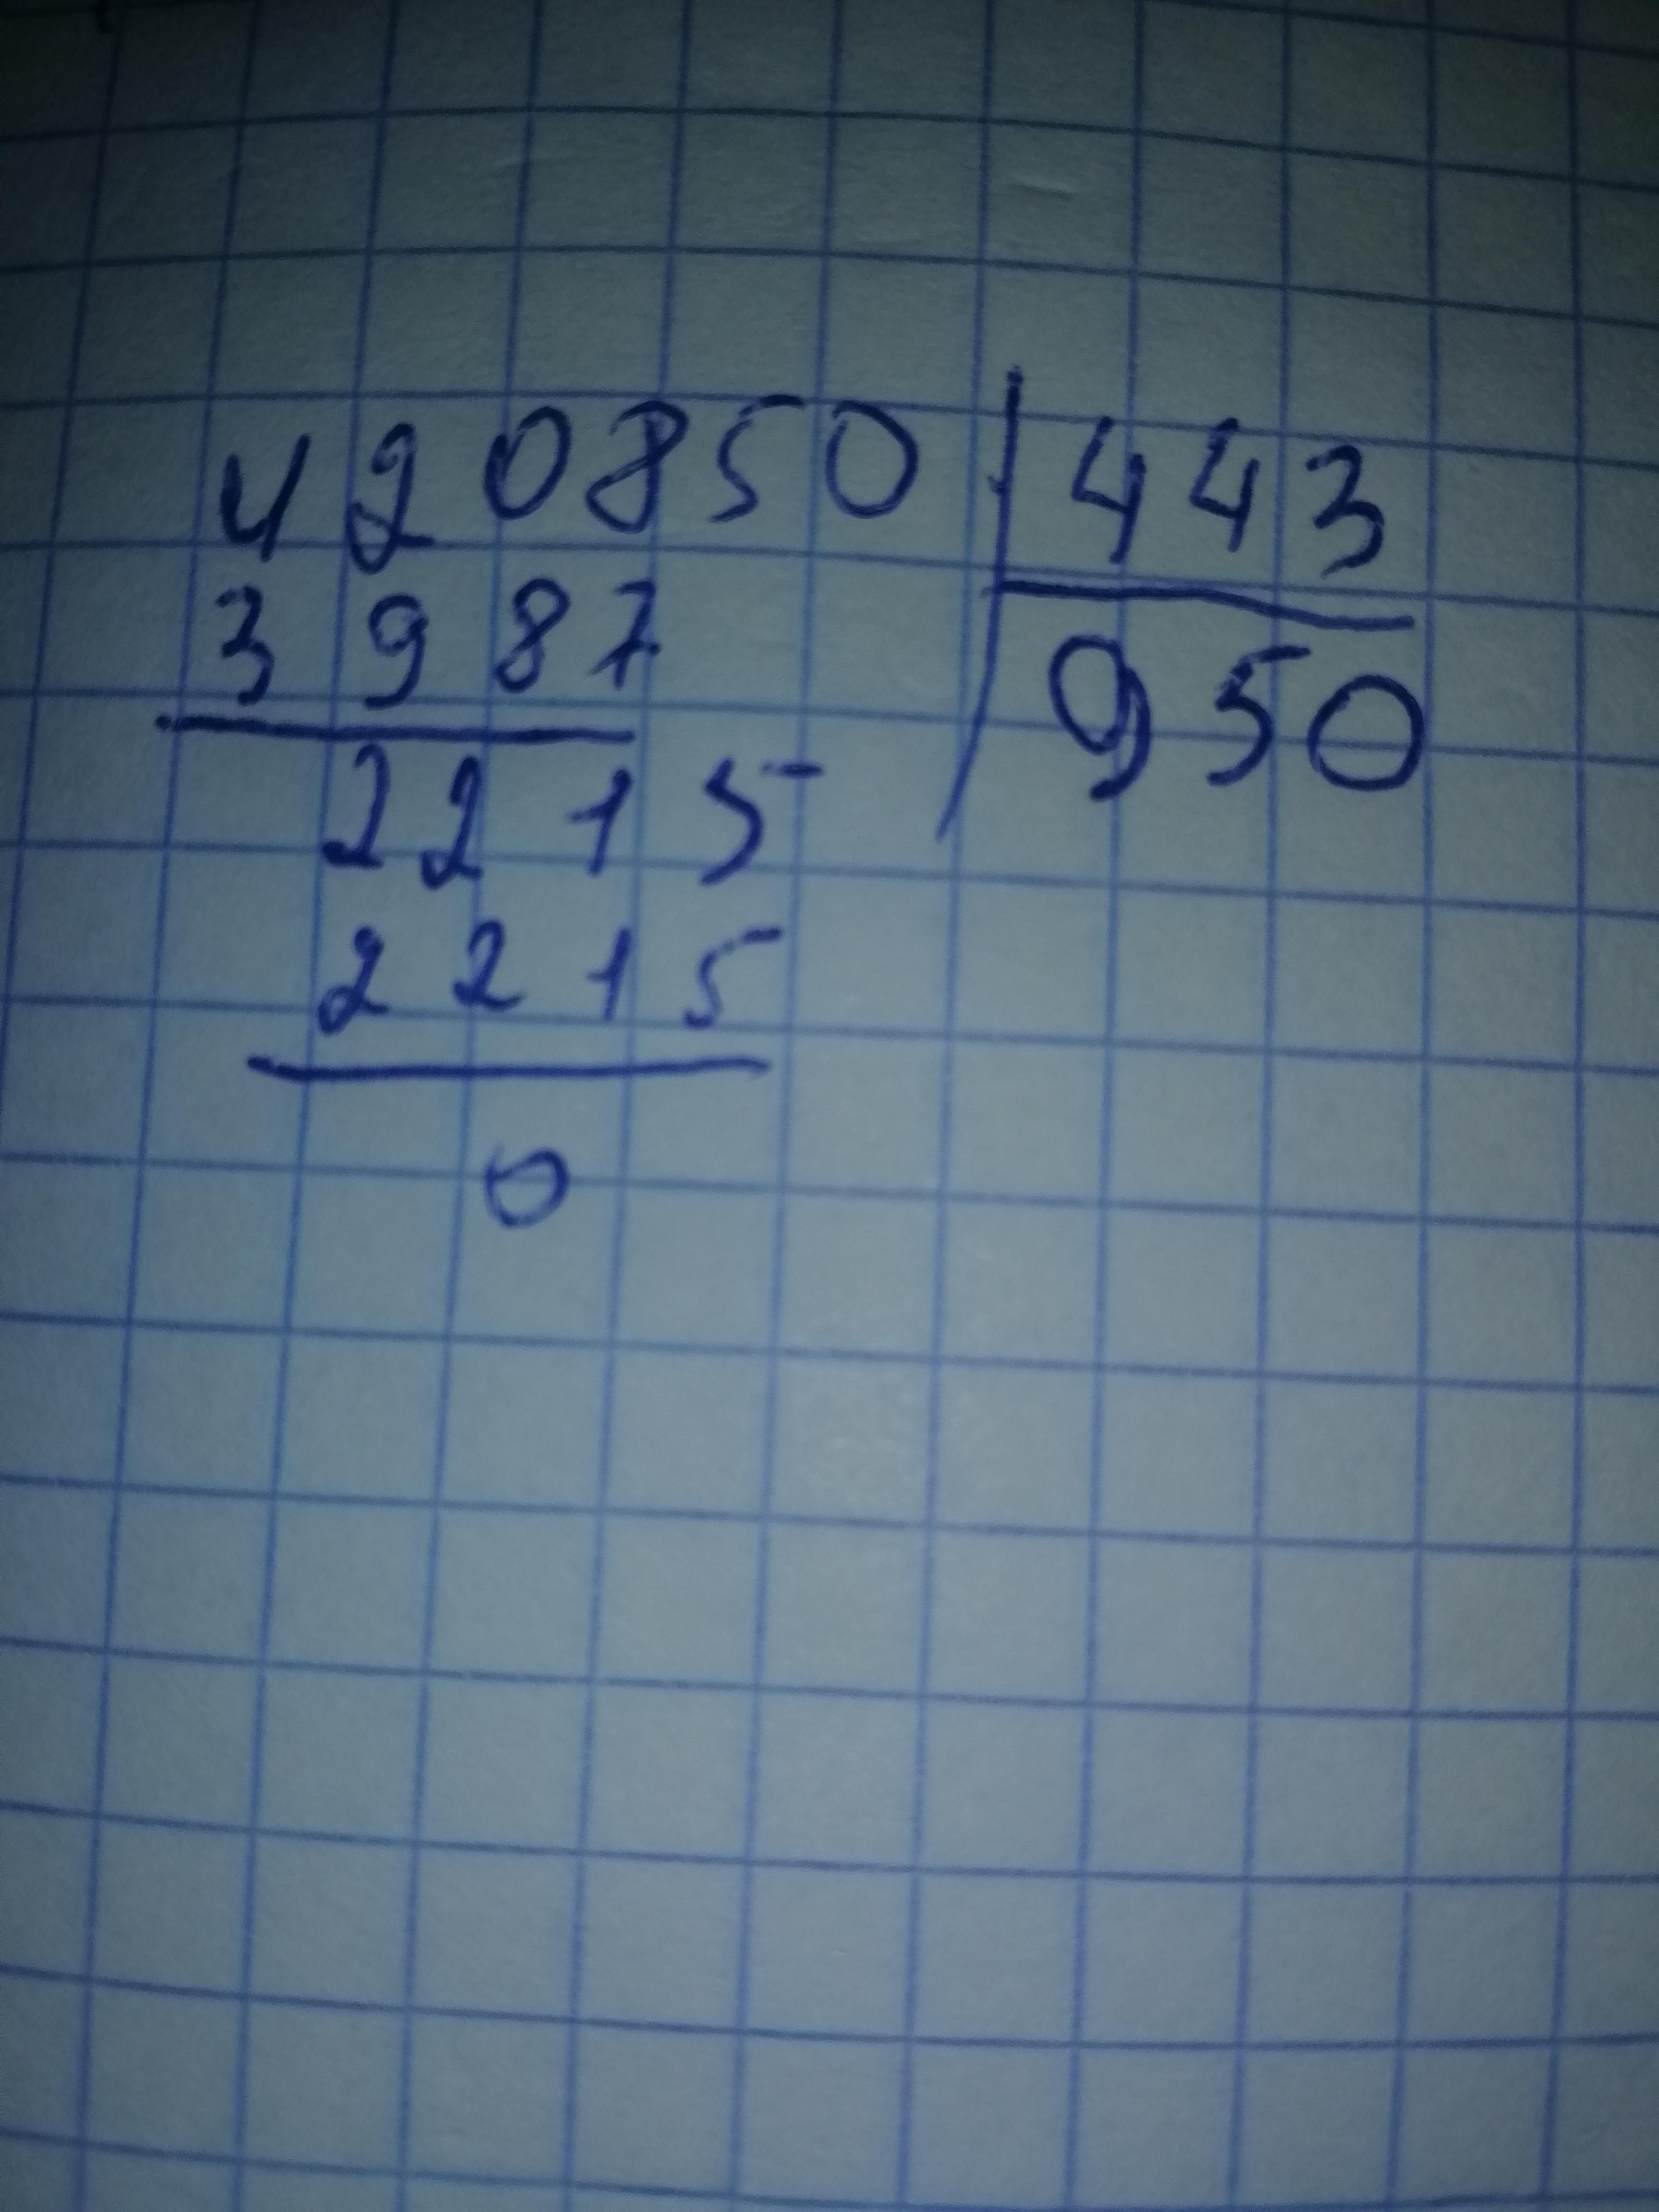 420850 443
3987 950
2215
2215
0